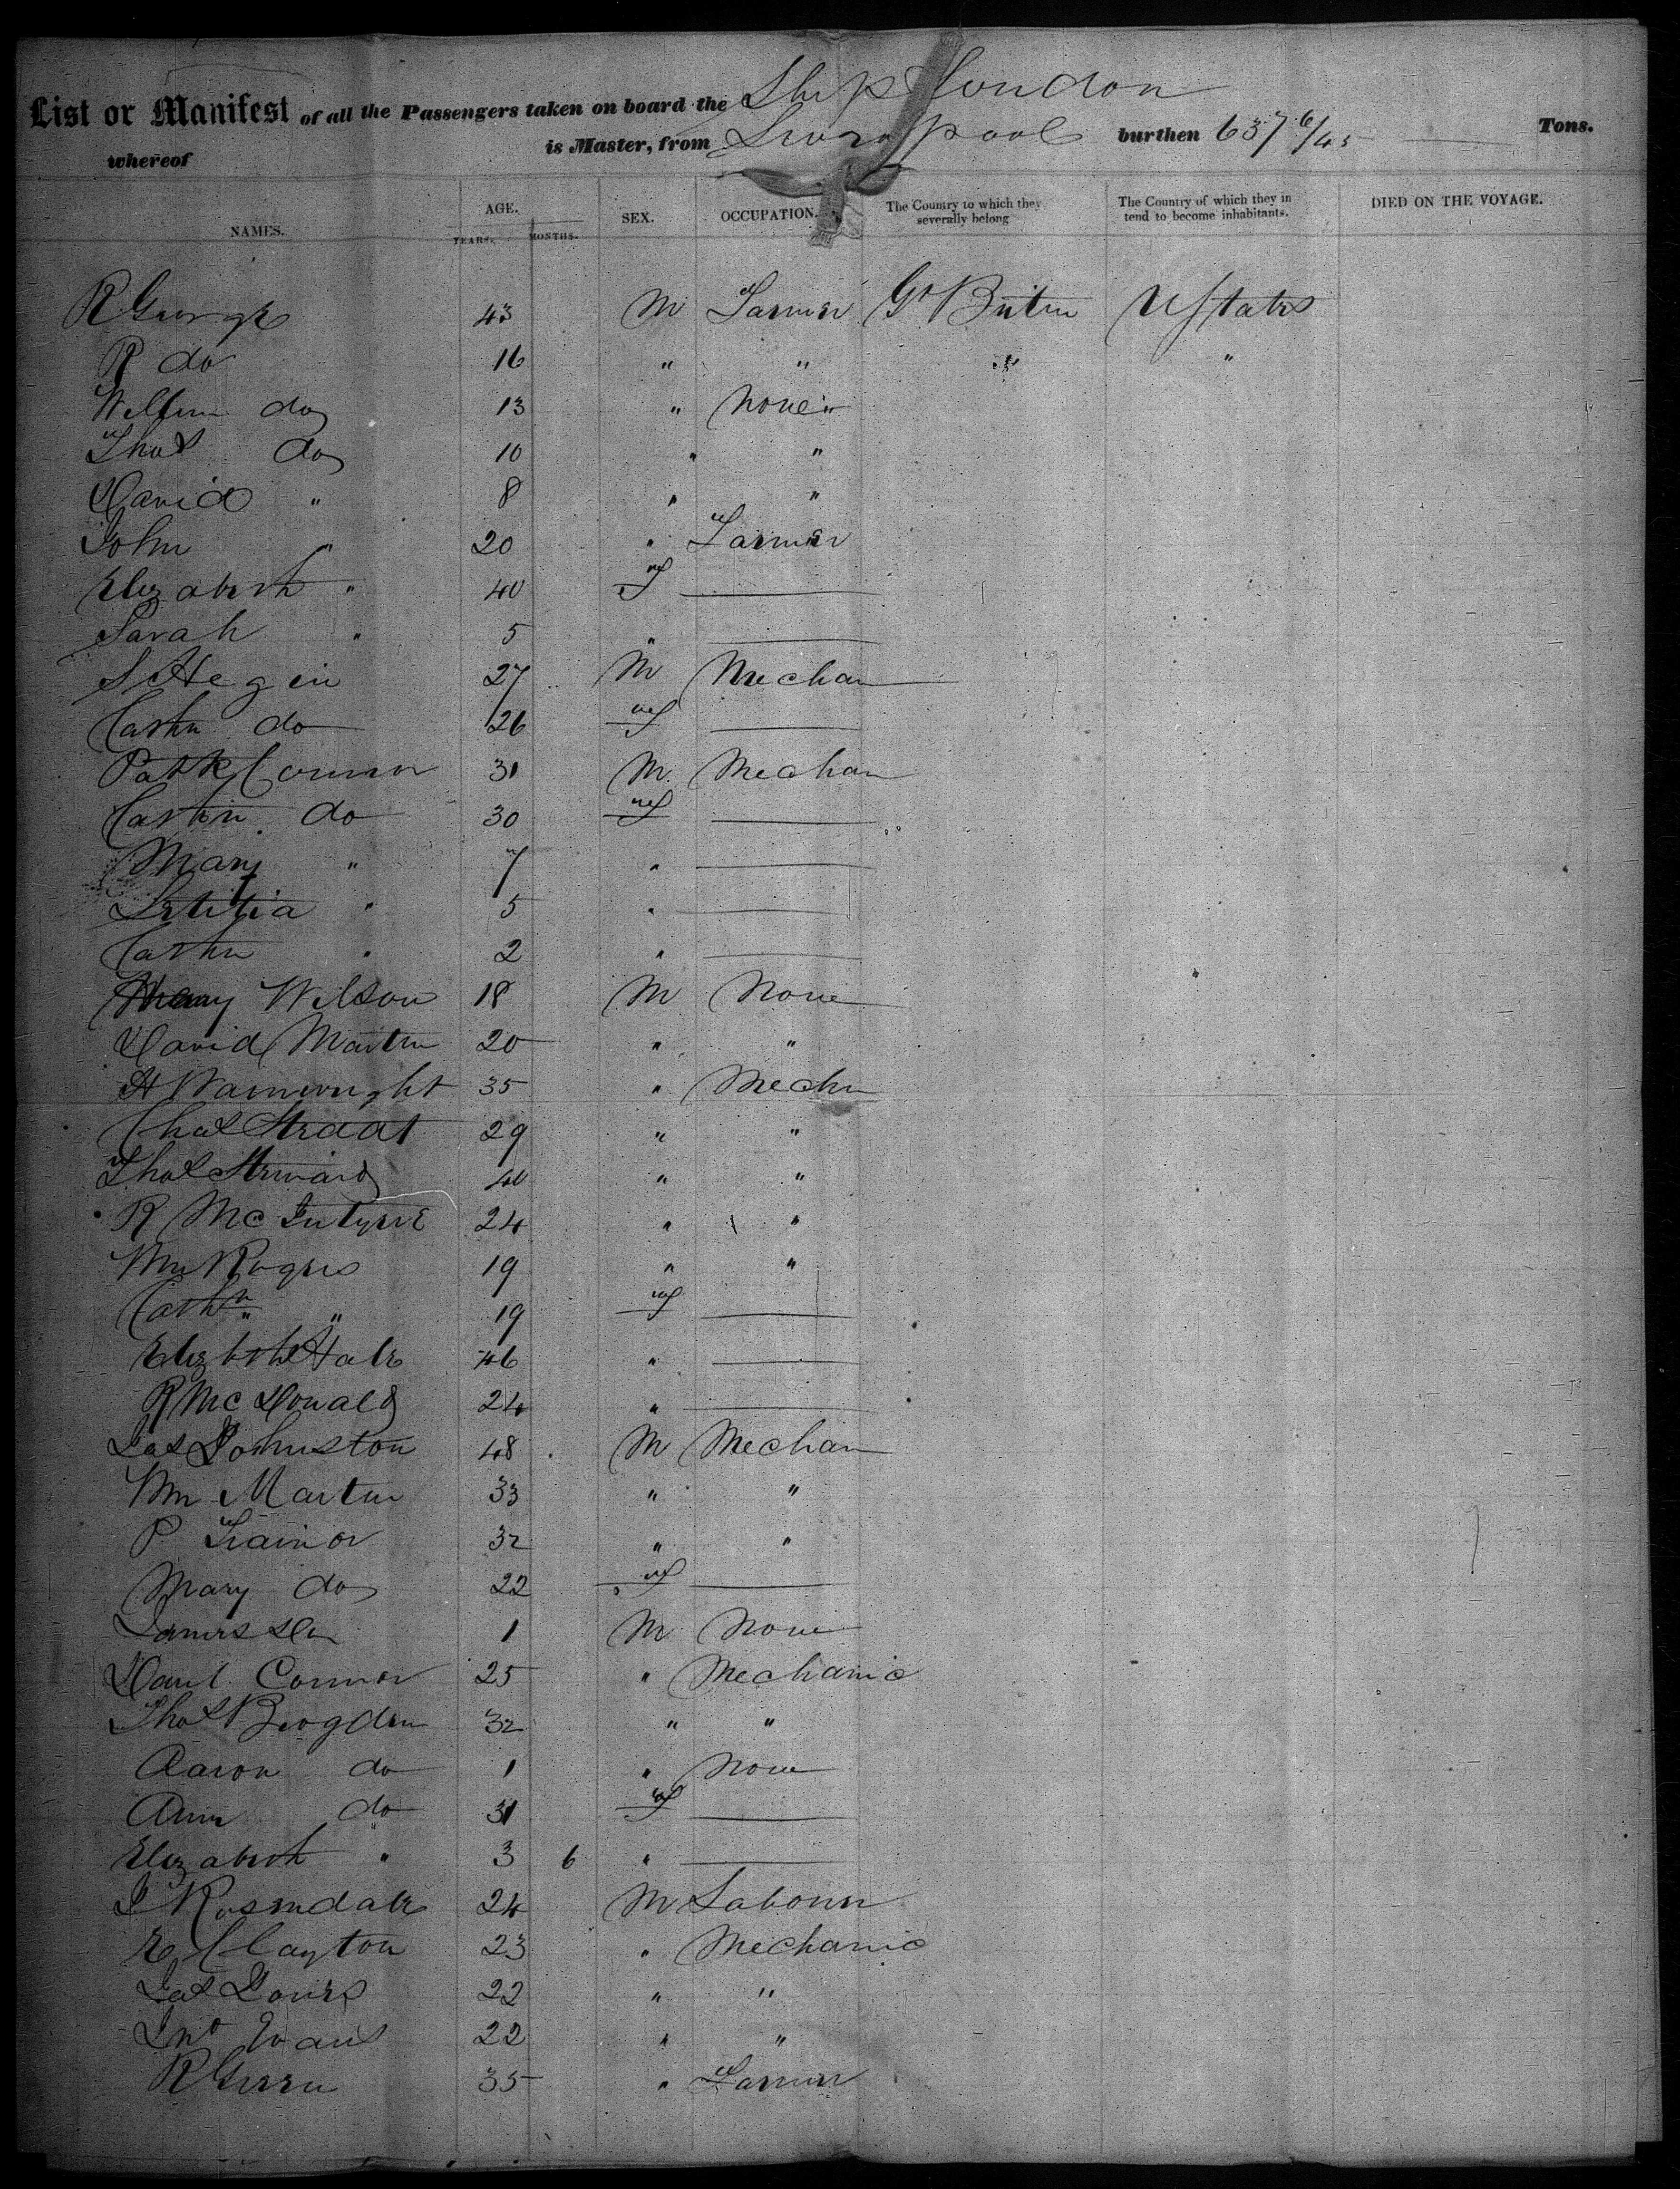 List or Manifest of all the Passengers taken on board the Ship London
whereof is Master, from Liverpool burthen 637 6/45 Tons.
NAMES. AGE. YEARS. MONTHS. SEX. OCCUPATION. The Country to which they severally belong The Country of which they intend to become inhabitants. DIED ON THE VOYAGE.
R George 43 M Farmer Gt Britn U States
R do 16 " " " "
William do 13 " None "
Thos do 10 " "
David " 8 " "
John " 20 " Farmer
Elizabeth " 40 f
Sarah " 5 "
S Hegin 27 M Mechan
Cathn do 26 f
Patk Connor 31 M Mechan
Cathn do 30 f
Mary " 7 "
Letitia " 5 "
Cathn " 2 "
Wilson 18 M None
David Martin 20 " "
H Wainwright 35 " Mechn
Chas 29 " "
Thos Steward 40 " "
R McIntyre 24 " "
Wm Rogers 19 " "
Cathn " 19 f
Elizbth Hale 46 "
R McDonald 24 "
Jas Johnston 48 M Mechan
Wm Martin 33 " "
P Trainor 32 " "
Mary do 22 f
James Do 1 M None
Danl Connor 25 " Mechanic
Thos Brogden 32 " "
Aaron do 1 " None
Ann do 31 f
Elizabeth " 3 6 "
J Rosendale 24 M Labourer
E Clayton 23 " Mechanic
Jas 22 " "
Jno Evans 22 " "
R Green 35 " Farmer